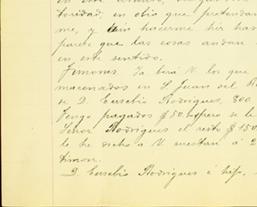 toridad, en otro que pretendan
me, y aun hacerme
parece que las cosas andan
en este sentido.
Timones. Ya dirá V. los que
macenados en S. Juan del
se D. Eusebio Rodrigues, 800
Tengo pagados $50 espero se le
Señor Rodrigues el resto $150
le he dicho a V cuestan á 2
timon.
D. Eusebio Rodrigues é hijo,